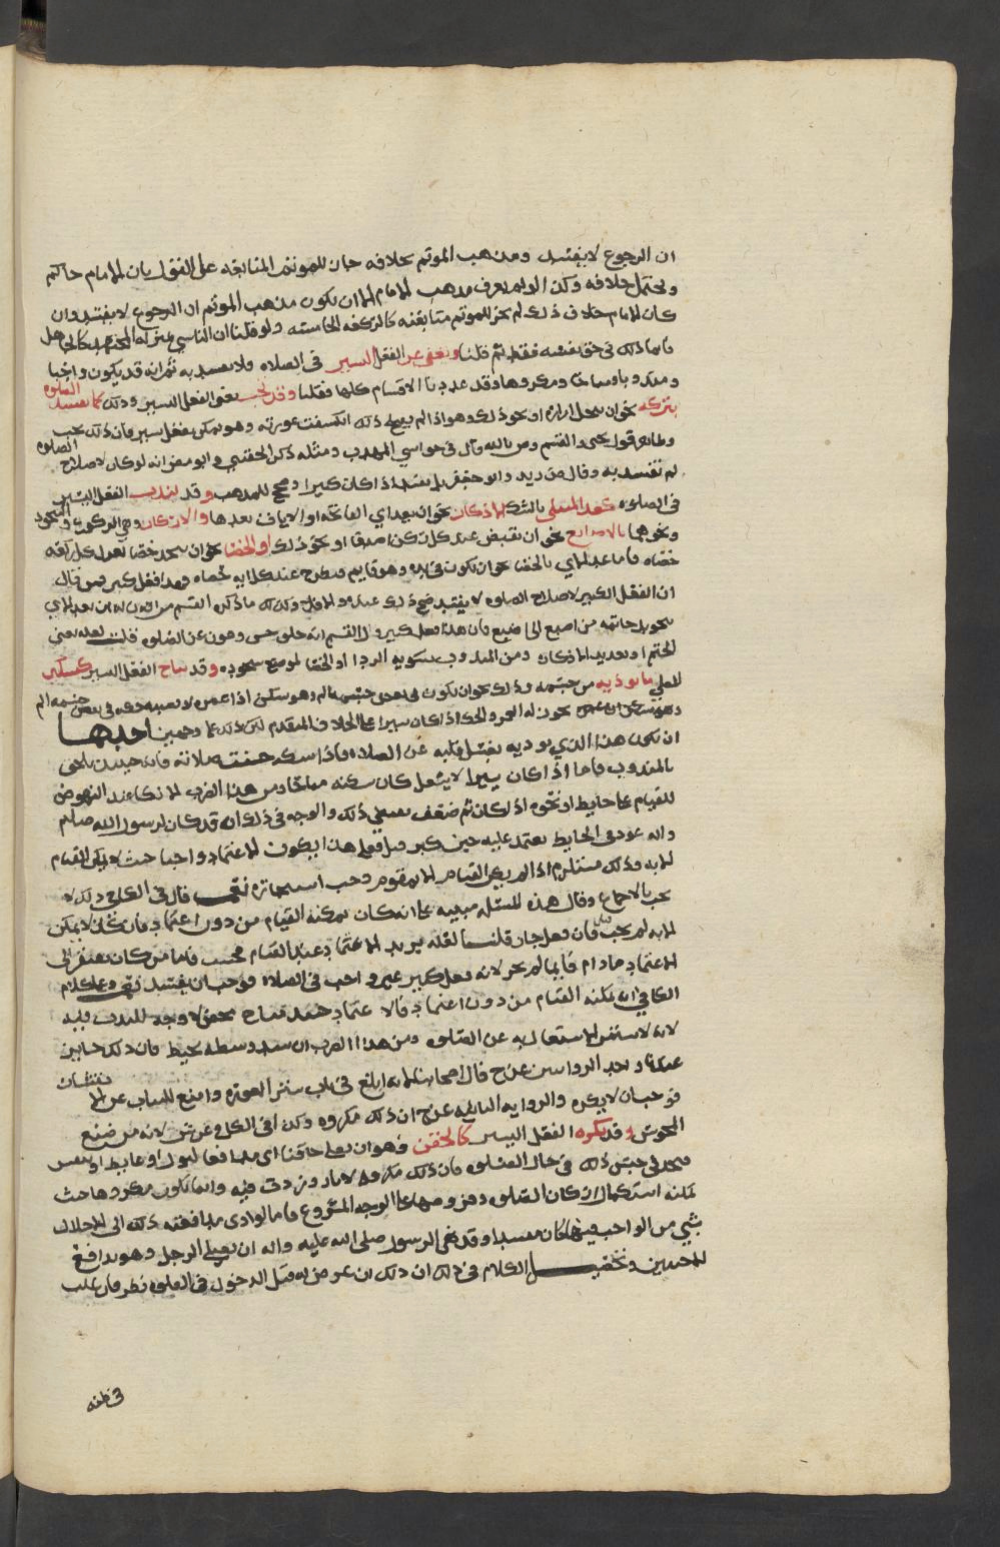 ان الرجوع لا يفسد ومذهب المؤتم خلافه جاز للمؤتم المتابعة على القول بان الامام حاكم
ويحتمل خلافه وكذا لو لم يعرف مذهب الامام اما ان يكون مذهب المؤتم ان الرجوع لا يفسد وان
كان للامام خلاف ذلك لم يجز للمؤتم متابعته كالركعة الخامسة ولو قلنا ان الناسي
فانما ذلك في حق نفسه فقط ثم قلنا ويعفى عن الفعل اليسير في الصلاه ولا تفسد به ثم انه قد يكون واجبا
ومندوبا ومباحا ومكروها وقد عددنا الاقسام كلها فقلنا وقد يجب يعني الفعل اليسير وذلك كما تفسد الصلوه
بتركه نحو ان ينحل ازاره او نحو ذلك وهو اذا لم ذلك انكشفت عورته وهو يمكن بفعل يسير فان ذلك يجب
وظاهر قول يحيى والقسم وص بالله وقال في حواشي المهذب ومثله ذكر الحقيني وابو مضر انه لو كان لاصلاح الصلوه
لم تفسد به وقال زيد وابو جعفر بل تفسد اذا كان كثيرا وصحح للمذهب وقد يندب الفعل اليسير
في الصلوه كعد المبتلى بالشك الاذكار نحو ان يعد اي الفاتحه او الايات بعدها والاركان وهي الركوع والسجود
ونحوهما بالاصابع نحو ان يقبض عند كل ركن اصبعا او نحو ذلك او الحصا نحو ان يتخذ حصا بعدد كل ركعه
حصاه فاما عد المبتلى بالحصا نحو ان تكون في يده وهو قايم فيطرح عند كل ايه حصاه فهذا فعل كثير فمن قال
ان الفعل الكثير لاصلاح الصلوه لا يفسد صح ذلك عنده والا فلا وكذلك ما ذكره القسم من
تحويل خاتمه من اصبع الى اصبع فان هذا فعل كثير والقسم انه خلى حسن وعون على الصلوه قلت لعله يعني
الخاتم او تعديد الاذكار ومن المندوب تسويه الردا او الحصا لموضع سجوده وقد يباح الفعل اليسير كتسكين
المصلي ما يوذيه من جسمه وذلك نحو ان يكون في بعض جسمه الم وهو يسكن اذا غمزه
احدهما
ان يكون هذا الذي يوذيه يشغل قلبه عن الصلاه فاذا سكنه حسنت صلاته فانه حينئذ يلحق
بالمندوب فاما اذا كان يسيرا لا يشغل كان تسكينه مباحا ومن هذا الضرب الاتكاء عند النهوض
للقيام على حايط او نحوه اذا كان ثم ضعف يقتضي ذلك والوجه في ذلك انه قد كان لرسول الله صلى
واله عود في الحايط يعتمد عليه حين كبر وقد يكون الاعتماد واجبا حيث لا يمكن القيام
الا به وذلك مستلزم اذا لم يمكن القيام الا بمقوم وجب قال في الكافي وذلك لا
يجب بالاجماع وقال هذه المسئله مبنيه على انه كان يمكنه القيام من دون اعتماد فان كان لا يمكن
الا به لم يجب فان فعل جاز قلنا لعله يريد الاعتماد عند القيام فحسب فاما من كان يفتقر الى
الاعتماد ما دام قايما لم يجز لانه فعل كثير غير واجب في الصلاه فوجب ان يفسد وعلى كلام
الكافي ان يمكنه القيام من دون اعتماد فالاعتماد حينئذ مباح محض لا وجه للندب فيه
لانه لا يستغرق الاشتغال به عن الصلوه ومن هذا الضرب ان يشد وسطه بخيط فان ذلك جايز
عندنا واحد الروايتين عن ح قال اصحابنا لانه ابلغ في باب ستر العوره وامنع للثياب عن الانتشار
فوجب ان لا يكره والروايه الثانيه عن ح ان ذلك مكروه وذكر في الكافي عن ش لانه من صنع
المجوس وقد يكره الفعل اليسير كالحقن وهو ان يصلي حاقنا اي مدافعا لبول او غايط او نفس
فيجد في حبس ذلك في حال الصلوه فان ذلك مكروه لاثار وردت فيه وانما يكون مكروها حيث
يمكنه استكمال اركان الصلوه وفروضها على الوجه المشروع فاما لو ادى مدافعته ذلك الى الاخلال
بشي من الواجب فيها كان مفسدا وقد نهى الرسول صلى الله عليه واله ان يصلي الرجل وهو يدافع
الاخبثين وتحصيل الكلام في ذلك ان ذلك ان عرض له قبل الدخول في الصلوه نظر فان غلب
في ظنه